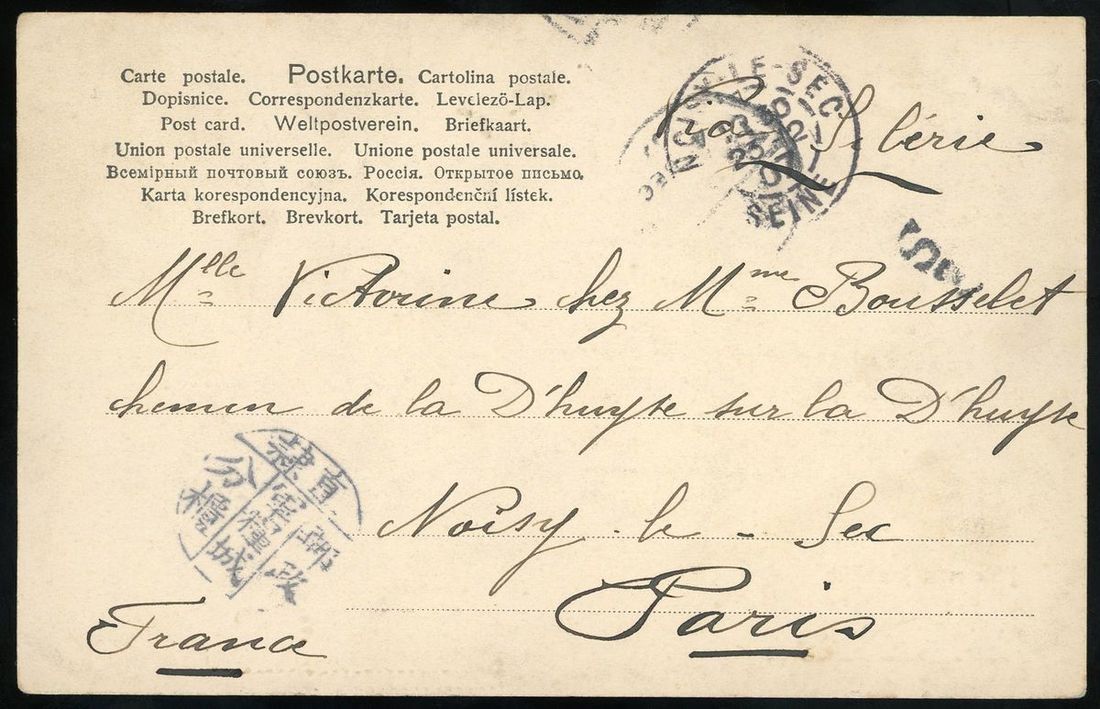 Carte postale. Postkarte. Cartolina postale.
Dopisnice. Correspondenzkarte. Levelező-Lap.
Post card. Weltpostverein. Briefkaart.
Union postale universelle. Unione postale universale.
Всемірный почтовый союзъ. Россія. Открытое письмо.
Karta korespondencyjna. Korespondenční lístek.
Brefkort. Brevkort. Tarjeta postal.
NOISY-LE-SEC
SEINE
Via Sibérie
Mlle Victorine chez Mme Bousselet
chemin de la D'huyse sur la D'huyse
Noisy-le-Sec
Paris
France
直隸
郵政
分櫃
城